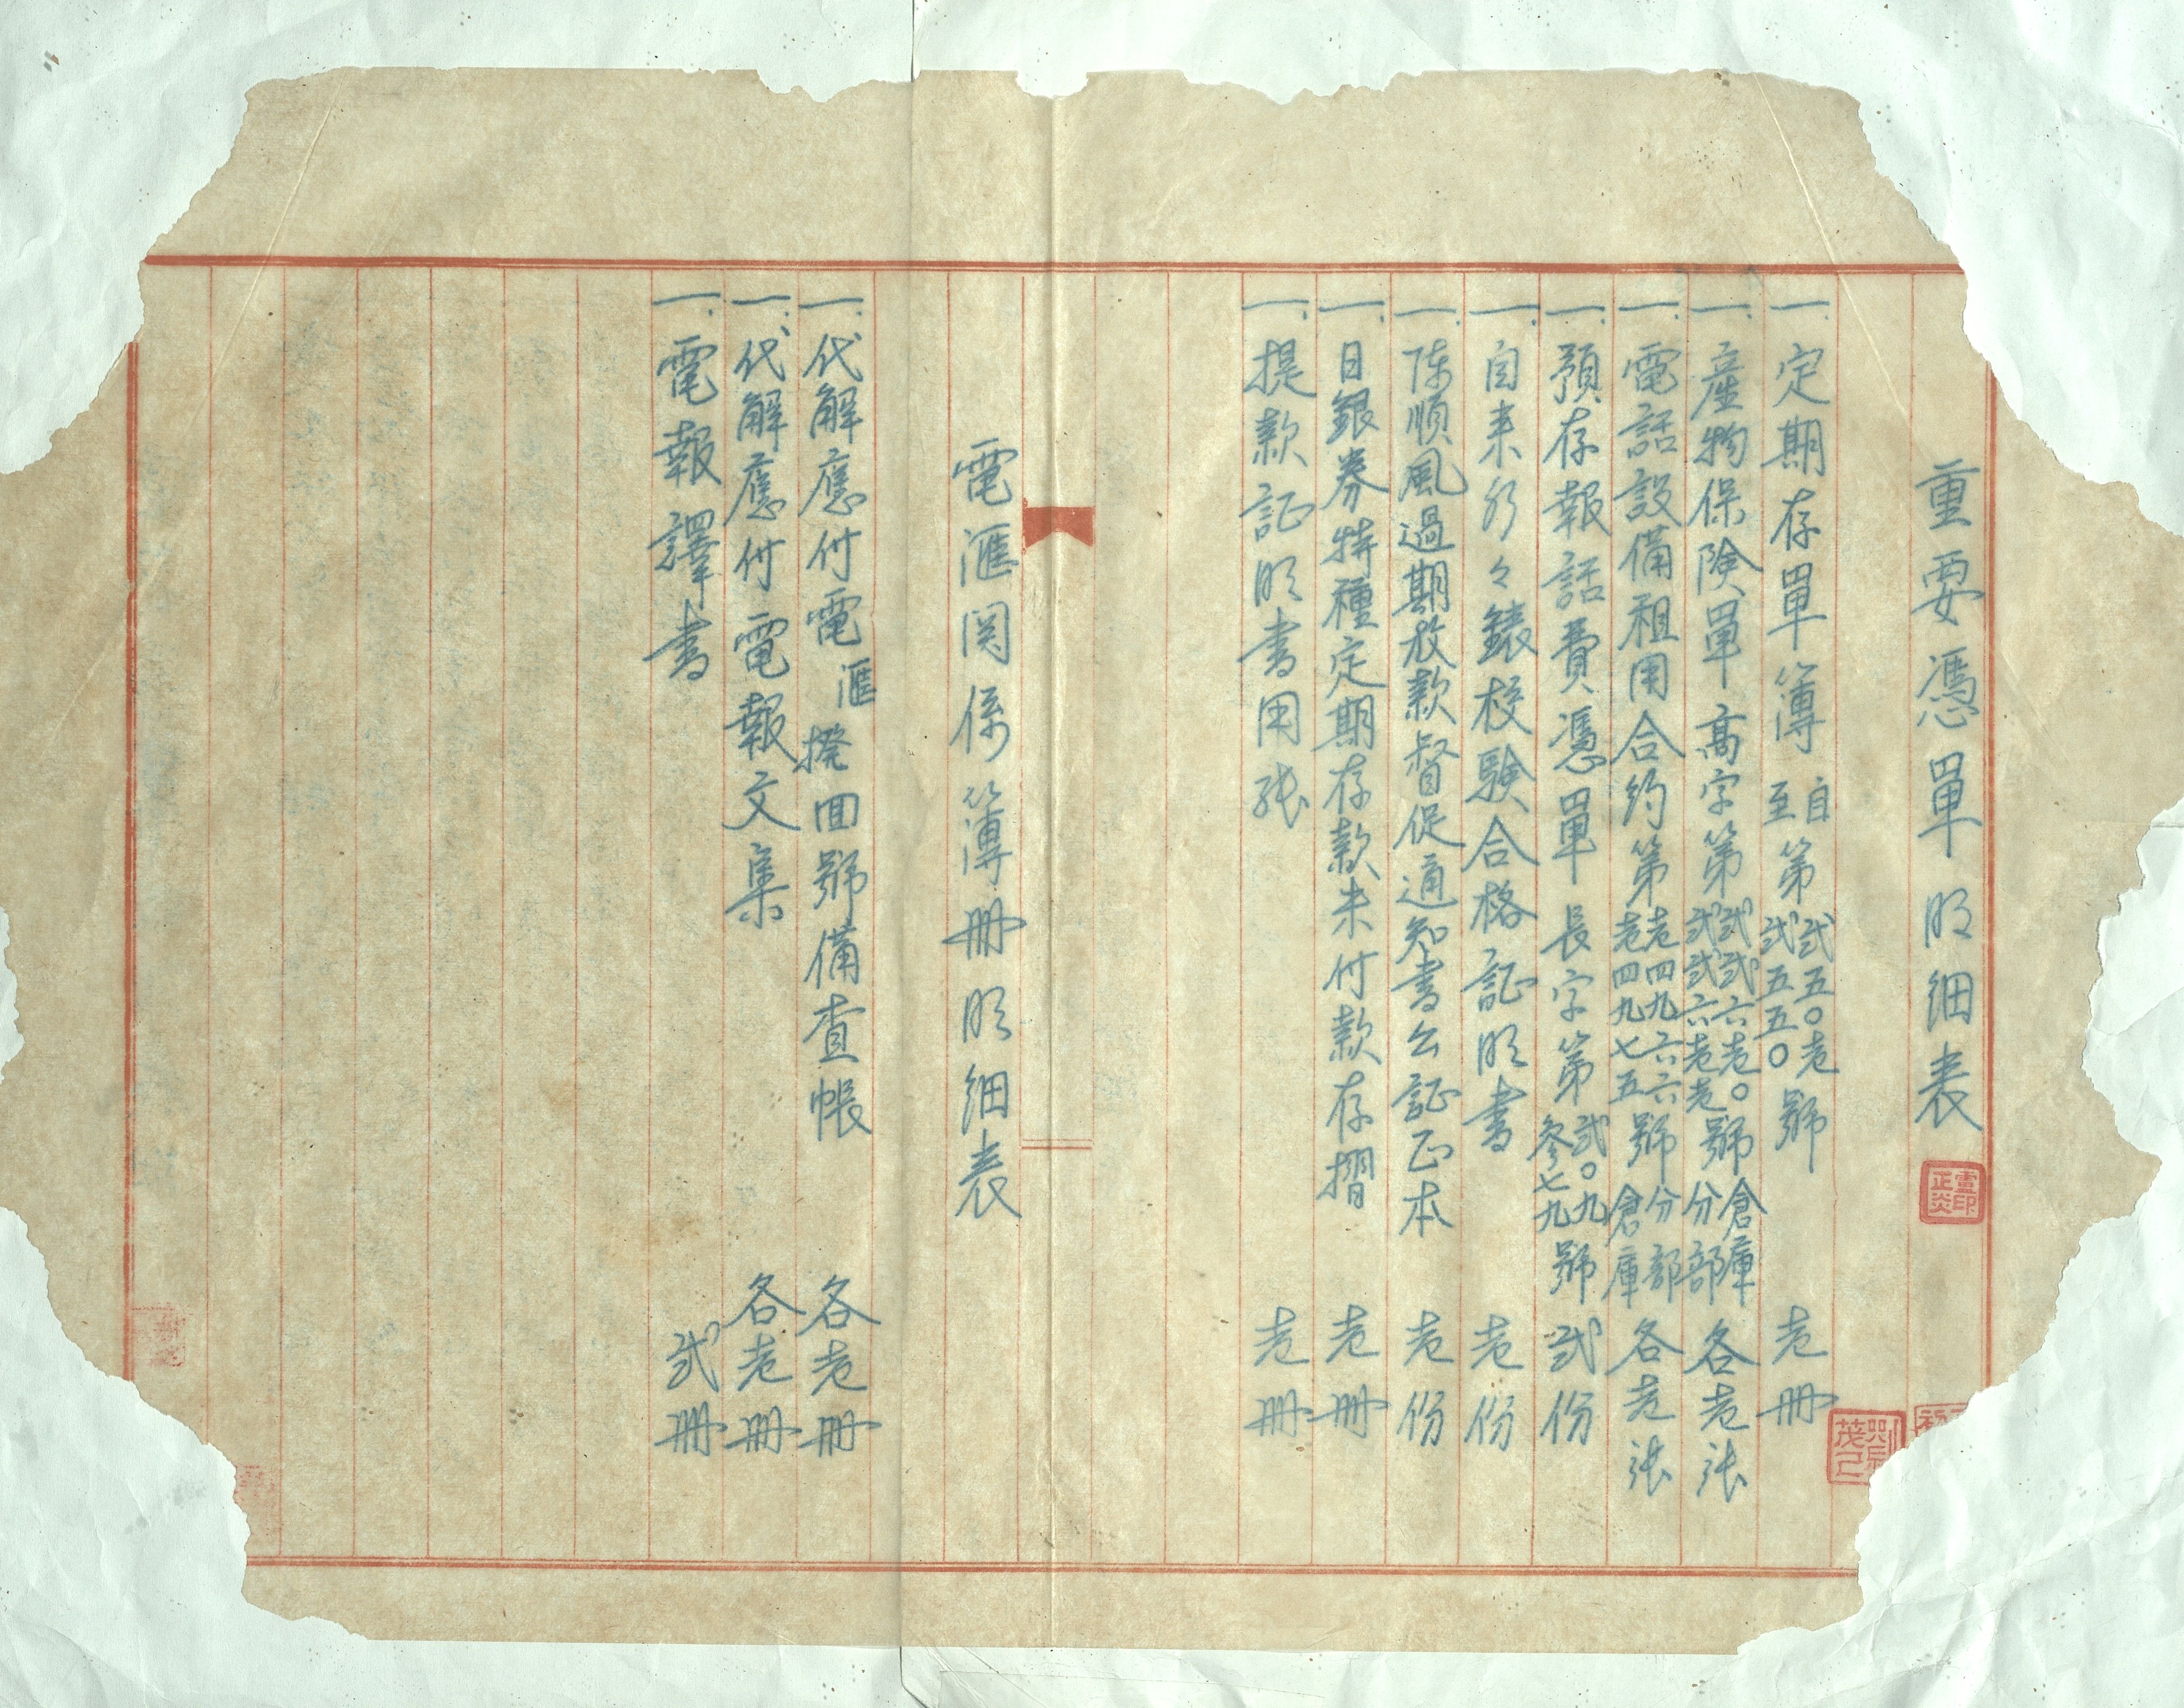 重要憑單明細表
盧印正炎
一.定期存單簿 自第弍五〇壱 至第弍五五〇 號 壱冊
一.產物保險單高字第弍弍六壱〇 弍弍六壱壱 號 倉庫 分部 各壱張
一.電話設備租用合約第壱四九六六 壱四九七五 號 分部 倉庫 各壱張
一.預存報話費憑單 長字第弍〇九 參七九 號 弍份
一.自来水々錶校驗合格証明書 壱份
一.陈順風過期放款督促通知書公証正本 壱份
一.日銀券特種定期存款未付款存摺 壱冊
一.提款証明書用张 壱冊
電滙関係簿冊明細表
一.代解應付電滙撥回號備查帳 各壱冊
一.代解應付電報文集 各壱冊
一.電報譯書 弍冊